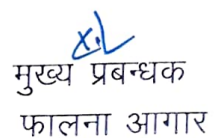 मुख्य प्रबन्धक
फालना आगार